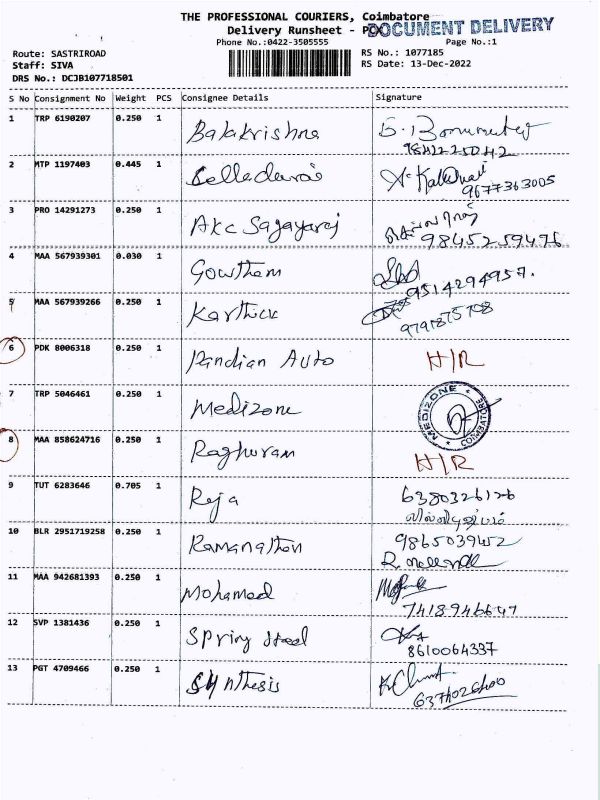 THE PROFESSIONAL COURIERS, Coimbatore
Delivery Runsheet - PO
DOCUMENT DELIVERY
Phone No.:0422-3505555
Page No.:1
Route: SASTRIROAD
RS No.: 1077185
Staff: SIVA
RS Date: 13-Dec-2022
DRS No.: DCJB107718501
S No Consignment No Weight PCS Consignee Details Signature
1 TRP 6190207 0.250 1 Balakrishna
2 MTP 1197403 0.445 1 Kalad
9677363005
3 PRO 14291273 0.250 1 Akc Sagayaraj
9845259476
4 MAA 567939301 0.030 1 Gowtham
9514294957.
5 MAA 567939266 0.250 1 Karthick
9791875708
6 PDK 8006318 0.250 1 Pandian Auto H/R
7 TRP 5046461 0.250 1 Medizone
MEDIZONE * COIMBATORE *
8 MAA 858624716 0.250 1 Raghuram H/R
9 TUT 6283646 0.705 1 Raja 6380326126
10 BLR 2951719258 0.250 1 Ramanathan 9865039452
11 MAA 942681393 0.250 1 Mohamed
7418946647
12 SVP 1381436 0.250 1 Spring steel
8610064337
13 PGT 4709466 0.250 1 Synthesis